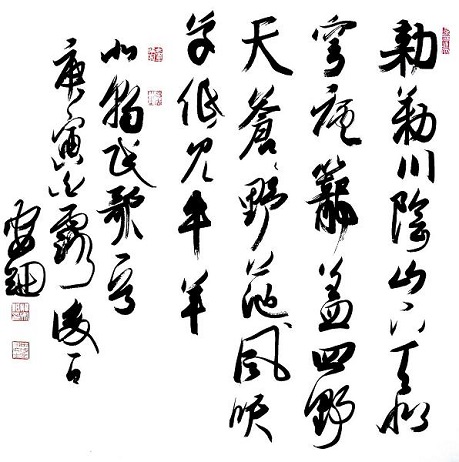 勅勒川陰山下天似
穹廬籠蓋四野
天蒼野茫風吹
草低見牛羊
北朝民歌
庚寅露後